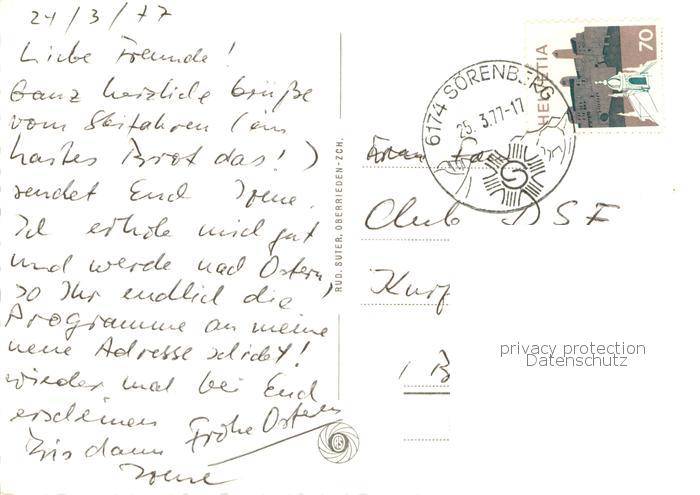 24/3/77
Liebe Freunde!
Ganz herzliche Grüße
vom Skifahren (ein
hartes Brot das!)
sendet Euch Irene.
Ich erhole mich gut
und werde nach Ostern,
so Ihr endlich die
Programme an meine
neue Adresse schickt!
wieder mal bei Euch
erscheinen Frohe Ostern
Bis dann
Irene
RUD. SUTER, OBERRIEDEN-ZCH.
RS
6174 SÖRENBERG
25.3.77-17
HELVETIA
70
Club DSF
Kurf
1 B
privacy protection
Datenschutz